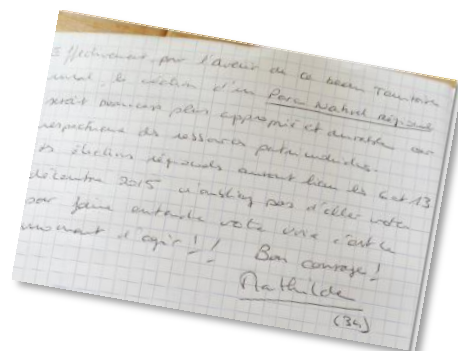 Effectivement pour l'avenir de ce beau Territoire
rural, la création d'un Parc Naturel Régional
serait beaucoup plus approprié et durable car
respectueux des ressources patrimoniales.
Les élections régionales auront lieu les 6 et 13
décembre 2015 n'oubliez pas d'aller voter
pour faire entendre votre voix c'est le
moment d'agir !!
Bon courage !
Mathilde
(34)